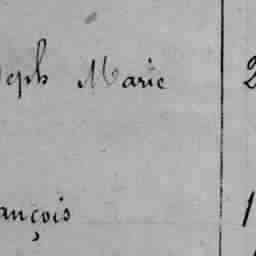 seph Marie 2
ançois 1